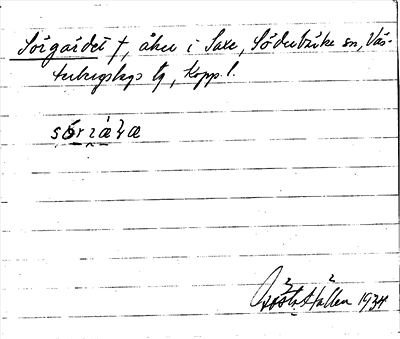 Sörgärdet †, åker i Saxe, Söderbärke sn, Väs-
terbergslags tg, Kopp. l.
Gösta Hallen 1934